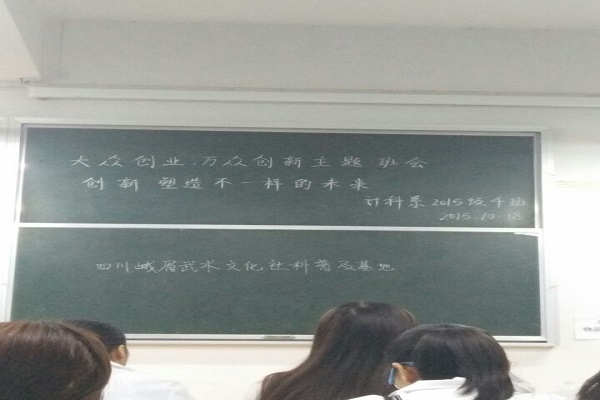 大众创业、万众创新主题班会
创新 塑造不一样的未来
计科系2015级4班
2015.10.18
四川峨眉武术文化社科普及基地